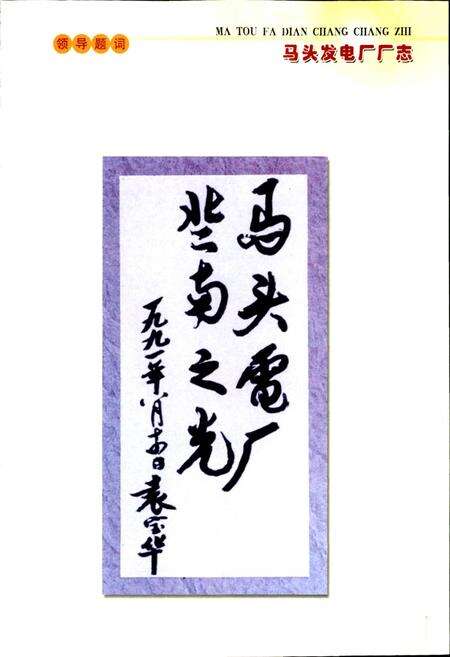 MA TOU FA DIAN CHANG CHANG ZHI
领导题词
马头发电厂厂志
马头電厂
冀南之光
一九九一年八月十五日 袁宝华